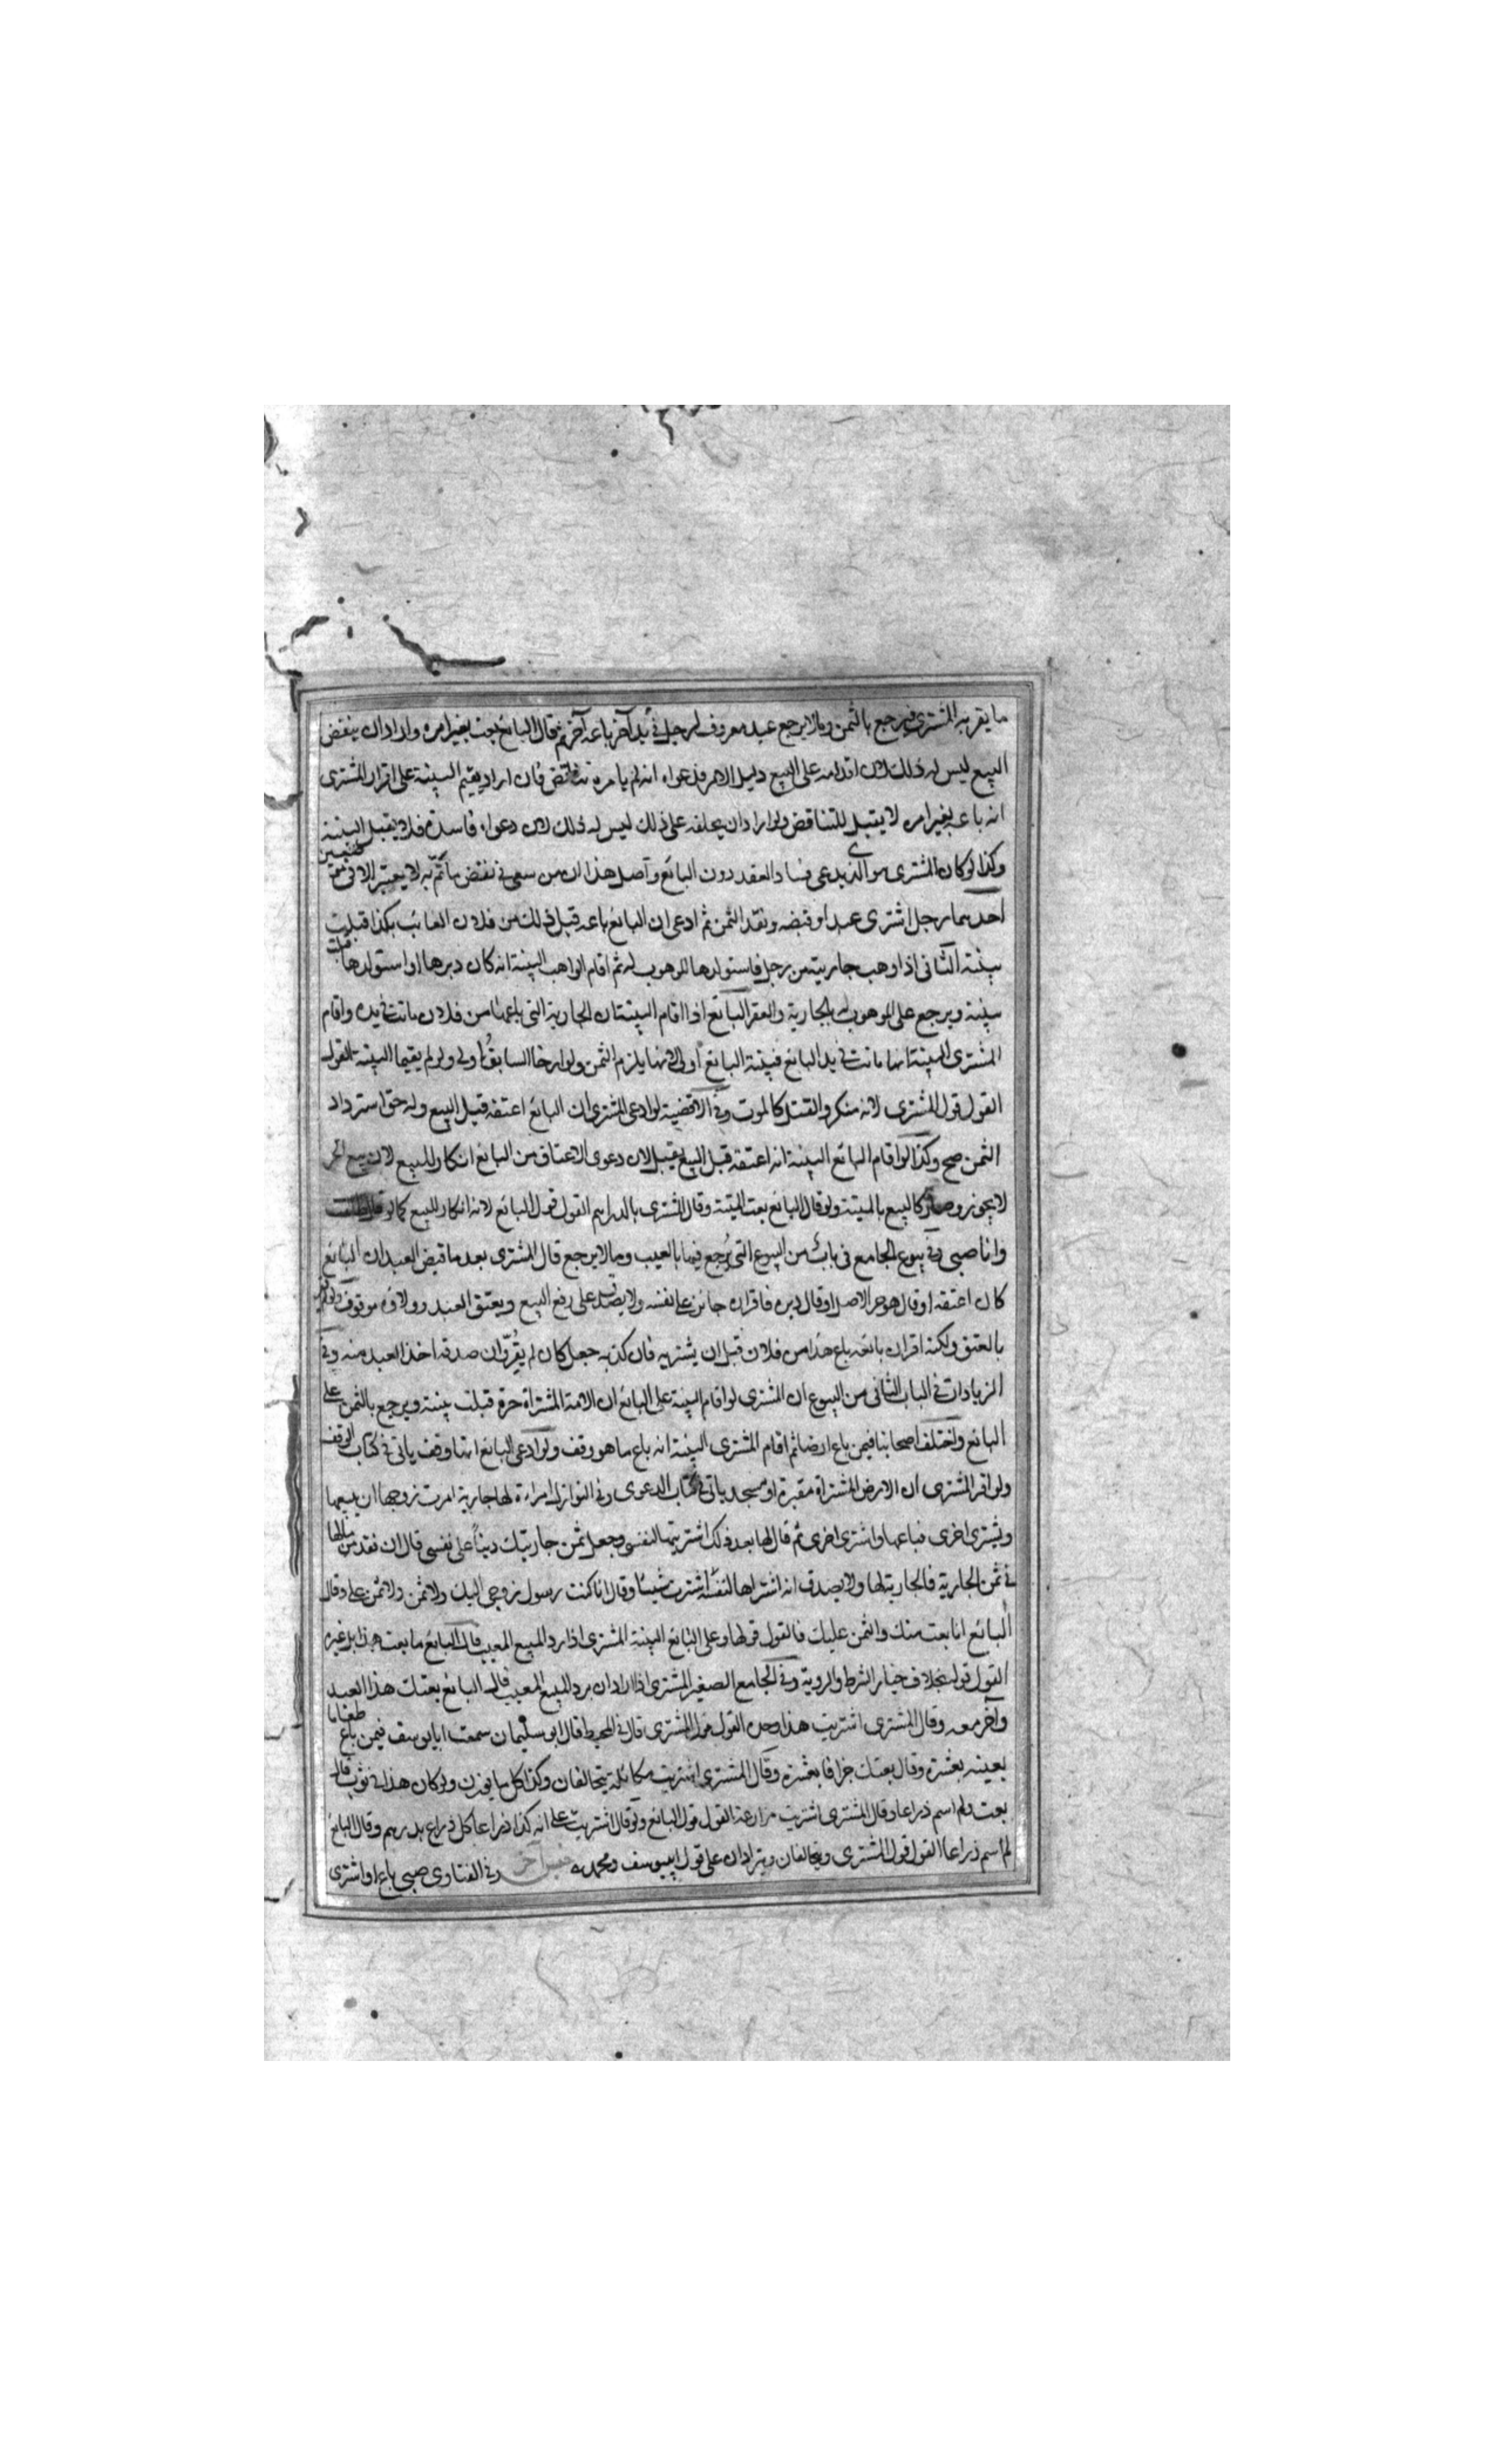 ما يقر به المشترى فيرجع بالثمن وما لا يرجع عبد معروف لرجل فى يد آخر باعه آخر ثم قال البائع بعت بغير امره واراد ان ينقض
البيع ليس له ذلك لان اقدامه على البيع دليل الامر فدعواه انه لم يامره تناقض فان اراد يقيم البينة على اقرار المشترى
انه باعه بغير امره لا يقبل للتناقض ولو اراد ان يحلفه على ذلك ليس له ذلك لان دعواه فاسدة فلا يقبل البينة
وكذا لو كان المشترى هو الذى يدعى فساد العقد دون البائع واصل هذا ان من سعى فى نقض ما تم به لا يعتبر الا فى موضعين
احدهما رجل اشترى عبدا وقبضه ونقد الثمن ثم ادعى ان البائع باعه قبل ذلك من فلان الغائب بكذا قبلت
بينته الثانى اذا وهب جاريته من رجل فاستولدها الموهوب له ثم اقام الواهب البينة انه كان دبرها او استولدها قبلت
بينته ويرجع على الموهوب له بالجارية والعقر البائع اذا اقام البينة ان الجارية التى باعها من فلان ماتت فى يده واقام
المشترى البينة انها ماتت فى يد البائع فبينة البائع اولى لانها يلزم الثمن ولو ارخا السابق اولى ولو لم يقيما البينة القول
القول قول المشترى لانه منكر والقتل كالموت وفى الاقضية لو ادعى المشترى ان البائع اعتقه قبل البيع وله حق استرداد
الثمن صح وكذا لو اقام البائع البينة انه اعتقه قبل البيع يقبل لان دعوى الاعتاق من البائع انكار للبيع لان بيع الحر
لا يجوز وصار كالبيع بالميتة ولو قال البائع بعت الميتة وقال المشترى بالدراهم القول قول البائع لانه انكار للبيع كما لو قال
وانا صبى وفى بيوع الجامع فى باب من البيوع التى يرجع فيها بالعيب وما لا يرجع قال المشترى بعد ما قبض العبد ان البائع
كان اعتقه او قال هو حر الاصل او قال دبره فاقراره جائز على نفسه ولا يصدق على رفع البيع ويعتق العبد وولاؤه موقوف ولو لم يقر
بالعتق ولكنه اقر ان بائعه باع هذا من فلان قبل ان يشتريه فان كذبه جعل كان لم يقر وان صدقه اخذ العبد منه وفى
الزيادات فى الباب الثانى من البيوع ان المشترى لو اقام البينة على البائع ان الامة المشتراة حرة قبلت بينته ويرجع بالثمن على
البائع واختلف اصحابنا فيمن باع ارضا ثم اقام المشترى البينة انه باع ما هو وقف ولو ادعى البائع انها وقف ياتى فى كتاب الوقف
ولو اقر المشترى ان الارض المشتراة مقبرة او مسجد ياتى فى كتاب الدعوى وفى النوازل امراة لها جارية امرت زوجها ان يبيعها
ويشترى اخرى فباعها واشترى اخرى ثم قال لها بعد ذلك اشتريتها لنفسى وجعل ثمن جاريتك دينا على نفسى قال ان نقد من مالها
فى ثمن الجارية فالجارية لها ولا يصدق انه اشتراها لنفسه اشترت شيئا وقال انا كنت رسول زوجى اليك ولا ثمن على وقال
البائع انا بعت منك والثمن عليك فالقول قولها وعلى البائع البينة المشترى اذا رد المبيع المعيب قال البائع ما بعت هذا بل غيره
القول قوله بخلاف خيار الشرط والروية وفى الجامع الصغير المشترى اذا اراد ان يرد المبيع المعيب قال البائع بعتك هذا العبد
وآخر معه وقال المشترى اشتريت هذا وحده القول قول المشترى قال فى المحيط قال ابو سليمان سمعت ابا يوسف فيمن باع طعاما
بعينه بعشرة وقال بعتك جزافا بعشرة وقال المشترى اشتريت مكائلة يتحالفان وكذا كل ما يوزن ولو كان هذا فى ثوب قال
بعت ولم اسم ذراعا وقال المشترى اشتريت مزارعة القول قول البائع ولو قال اشتريت على انه كذا ذراعا كل ذراع بدرهم وقال البائع
لم اسم ذراعا القول قول المشترى ويتحالفان ويترادان على قول ابى يوسف ومحمد جنس آخر وفى الفتاوى صبى باع او اشترى